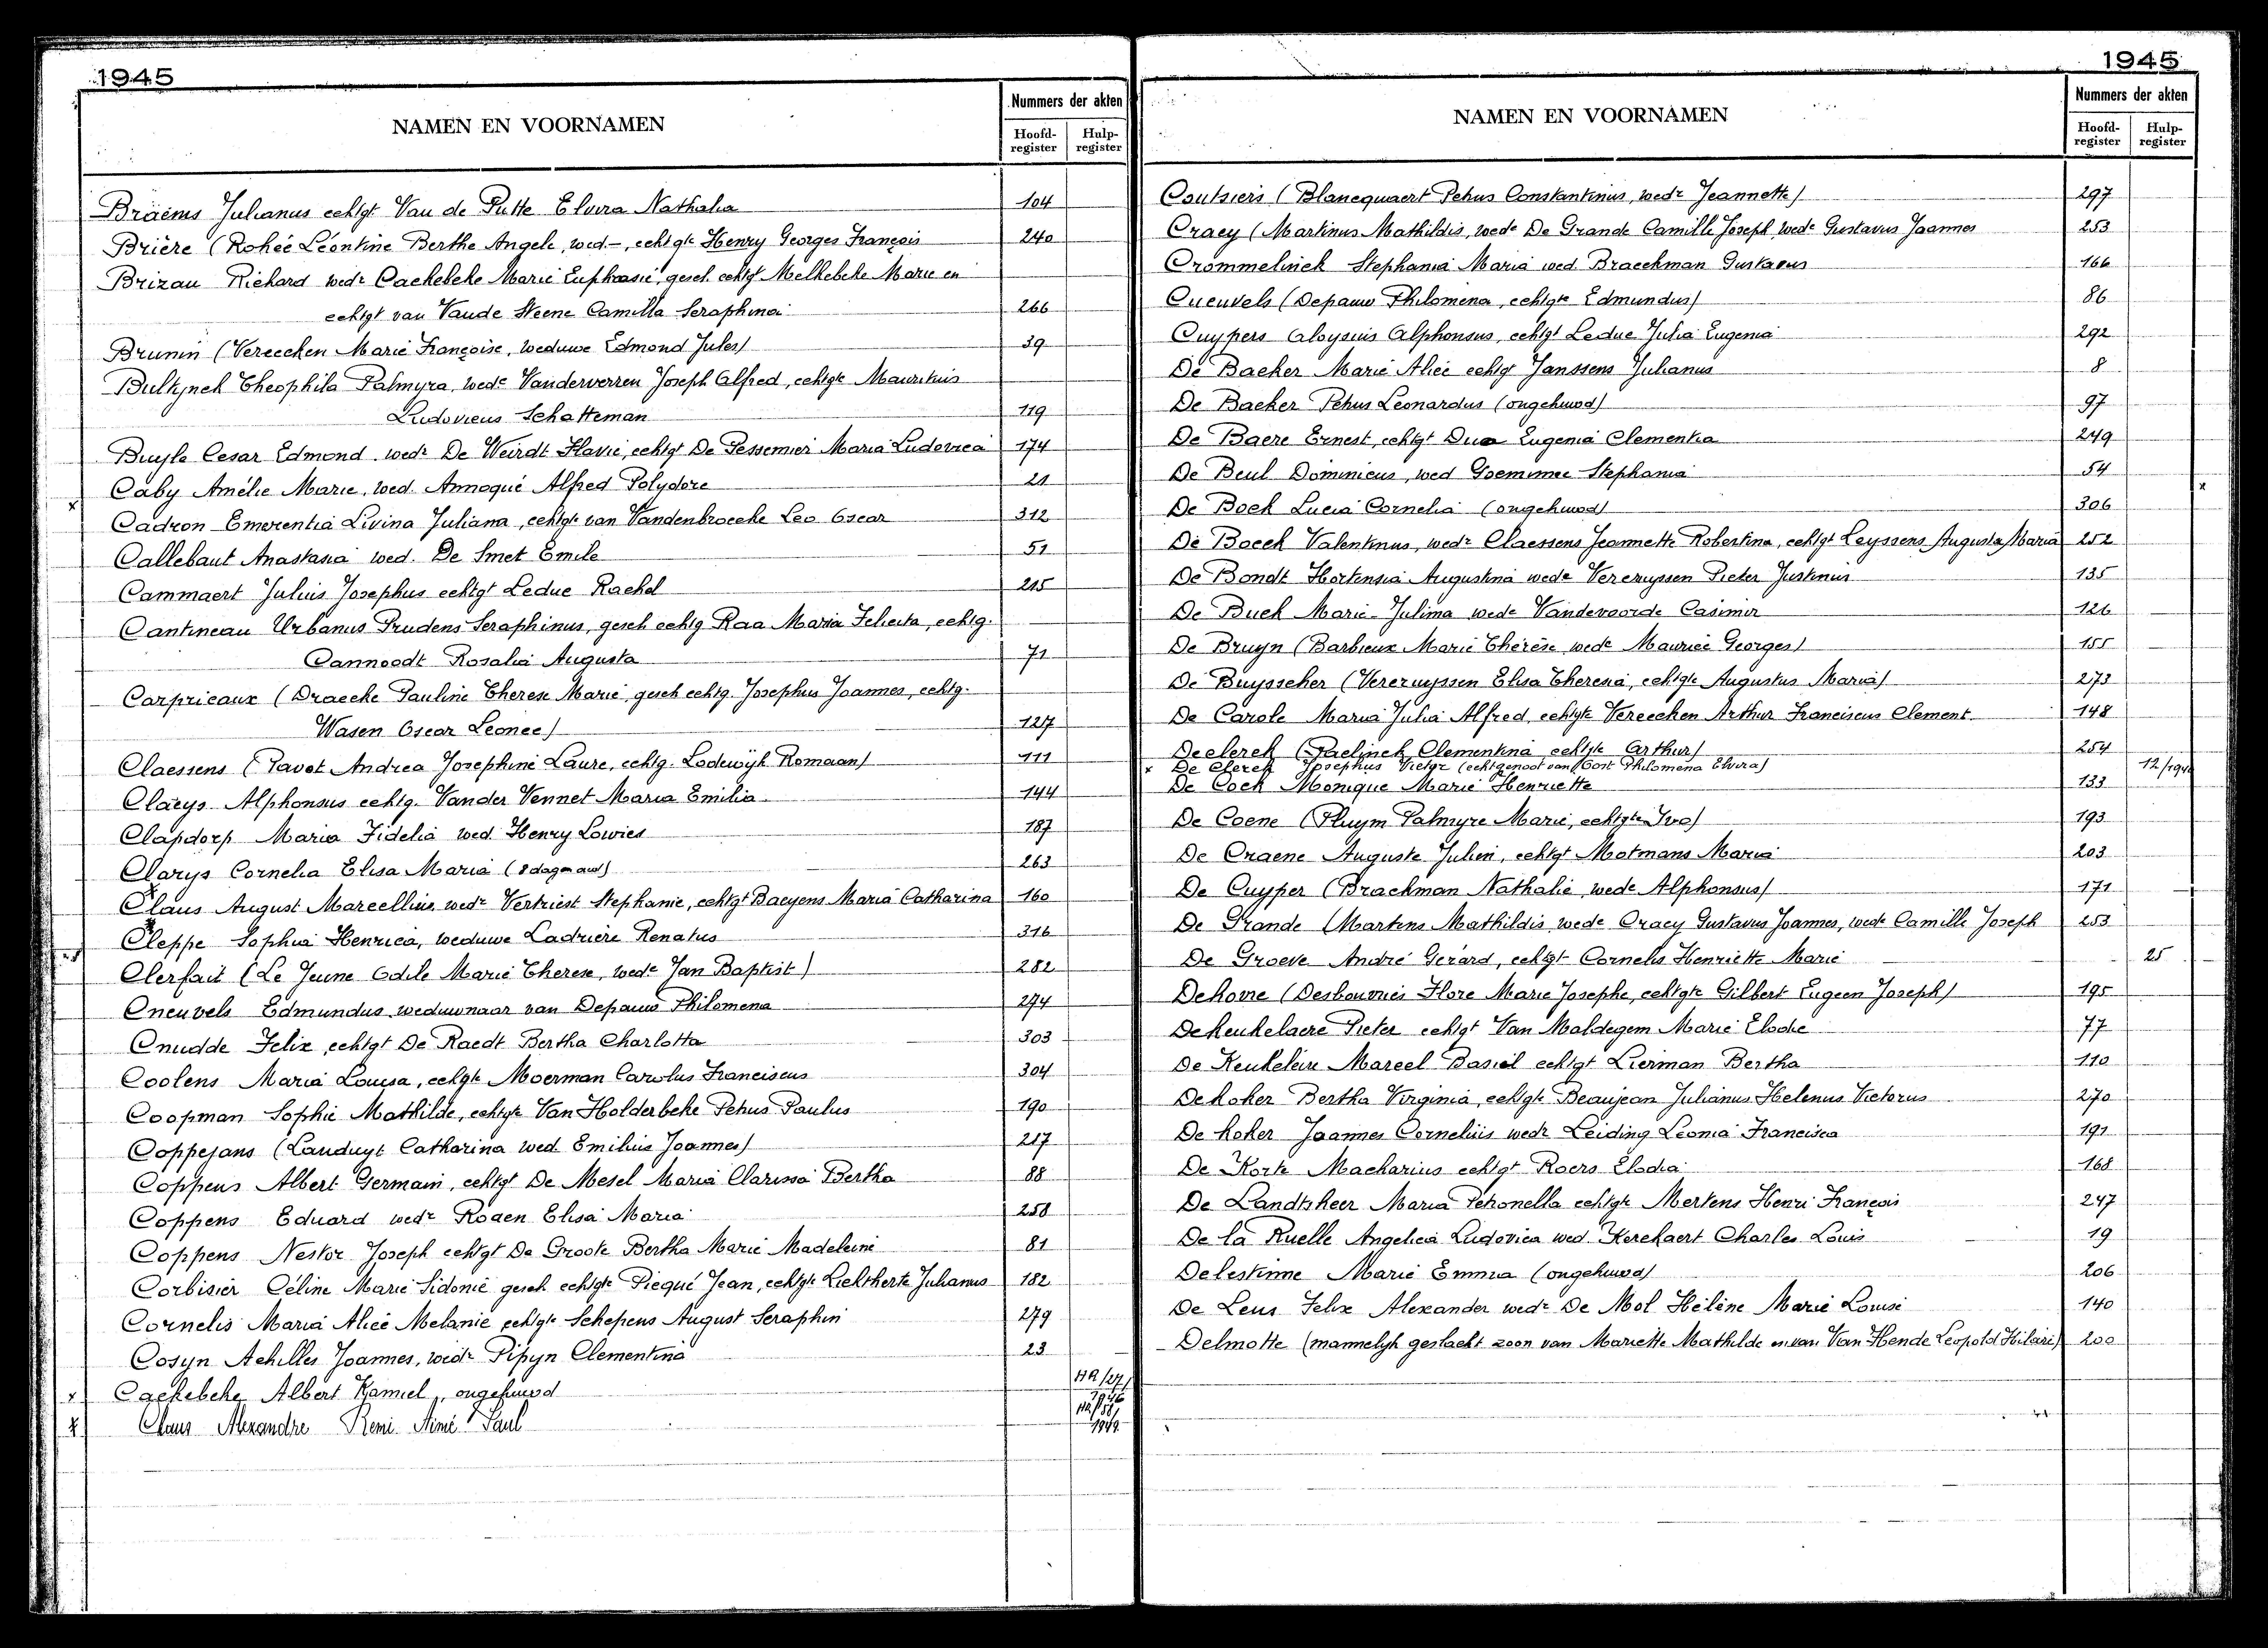 1945
NAMEN EN VOORNAMEN
Nummers der akten
Hoofd-register Hulp-register
Braems Julianus echtgt Van de Putte Elvira Nathalia 104
Brière (Rohée Léontine Berthe Angele, wed-, echtgte Henry Georges François 240
Brizau Richard wedr Cackebeke Marie Euphrasie, gesch. echtgt Melkebeke Marie en
echtgt van Vande Steene Camilla Seraphina 266
Brunin (Vereecken Marie Françoise, weduwe Edmond Jules) 39
Bultynck Theophila Palmyra, wede Vanderverren Joseph Alfred, echtgte Mauritius
Ludovicus Schatteman 119
Buyle Cesar Edmond wedr De Weirdt Flavie, echtgt De Pessemier Maria Ludovica 174
Caby Amélie Marie, wed. Annoqué Alfred Polydore 21
x Cadron Emerentia Livina Juliana, echtgte van Vandenbroecke Leo Oscar 312
Callebaut Anastasia wed. De Smet Emile 51
Cammaert Julius Josephus echtgt Leduc Rachel 215
Cantineau Urbanus Prudens Seraphinus, gesch echtg Raa Maria Felicita, echtg.
Cannoodt Rosalia Augusta 71
Carpricaux (Draecke Pauline Therese Marie, gesch echtg. Josephus Joannes, echtg.
Wasen Oscar Leonce) 127
Claessens (Pavot Andrea Josephine Laure, echtg. Lodewijk Romaan) 111
Claeys Alphonsus echtg. Vander Vennet Maria Emilia 144
Clapdorp Maria Fidelia wed. Henry Lowies 187
Clarys Cornelia Elisa Maria (8 dagen oud) 263
Claus August Marcellius wedr Vertriest Stephanie, echtgt Baeyens Maria Catharina 160
Cleppe Sophia Henrica, weduwe Ladrière Renatus 316
Clerfait (Le Jeune Odile Marie Therese, wede Jan Baptist) 282
Cneuvels Edmundus weduwnaar van Depauw Philomena 274
Cnudde Felix, echtgt De Raedt Bertha Charlotta 303
Coolens Maria Louisa, echtgte Moerman Carolus Franciscus 304
Coopman Sophie Mathilde, echtgte Van Holderbeke Petrus Paulus 190
Coppejans (Landuyt Catharina wed. Emilius Joannes) 217
Coppens Albert Germain, echtgt De Mesel Maria Clarissa Bertha 88
Coppens Eduard wedr Rogen Elisa Maria 258
Coppens Nestor Joseph echtgt De Groote Bertha Marie Madeleine 81
Corbisier Céline Marie Sidonie gesch echtgte Piequé Jean, echtgte Liektherte Julianus 182
Cornelis Maria Alice Melanie echtgte Schepens August Seraphin 279
Cosyn Achilles Joannes, wedr Pipyn Clementina 23
x Cackebeke Albert Kamiel, ongehuwd
x Claus Alexandre Remi Aimé Paul
1945
NAMEN EN VOORNAMEN
Nummers der akten
Hoofd-register Hulp-register
Coutsiers (Blancquaert Petrus Constantinus, wedr Jeannette) 297
Cracy (Martinus Mathildis, wede De Grande Camille Joseph, wede Gustavus Joannes 253
Crommelinck Stephania Maria wed. Braeckman Gustavus 166
Cueuvels (Depauw Philomena, echtgte Edmundus) 86
Cuypers Aloysius Alphonsus, echtgt Leduc Julia Eugenia 292
De Backer Marie Alice echtg Janssens Julianus 8
De Backer Petrus Leonardus (ongehuwd) 97
De Baere Ernest, echtgt Dua Eugenia Clementia 249
De Beul Dominicus, wed Goeminne Stephania 54
De Bock Lucia Cornelia (ongehuwd) 306 x
De Boeck Valentinus, wedr Claessens Jeannette Robertina, echtgt Leyssens Augusta Maria 252
De Bondt Hortensia Augustina wede Vercruyssen Pieter Justinus 135
De Buck Marie Julima wede Vandevoorde Casimir 126
De Bruyn (Barbieux Marie Thérèse wede Maurice Georges) 155
De Buysscher (Vercruyssen Elisa Theresia, echtgte Augustus Maria) 273
De Carole Maria Julia Alfred, echtgte Vereecken Arthur Franciscus Clement 148
Declerck (Paelinck Clementina echtgte Arthur) 254
x De Clerck Josephus Victor (echtgenoot van Oost Philomena Elvira)
De Cock Monique Marie Henriette 133
De Coene (Pluym Palmyre Marie, echtgte Ivo) 193
De Craene Auguste Julien, echtgt Motmans Maria 203
De Cuyper (Brackman Nathalie, wede Alphonsus) 171
De Grande (Martens Mathildis wede Cracy Gustavus Joannes, wede Camille Joseph 253
De Groeve André Gérard, echtgt Cornelis Henriette Marie 25
Dehovre (Desbouvries Flore Marie Josephe, echtgte Gilbert Eugeen Joseph) 195
Dekeukelaere Pieter echtgt Van Maldegem Marie Elodie 77
De Keukeleire Marcel Basiel echtgt Lierman Bertha 110
Dekoker Bertha Virginia, echtgte Beaujean Julianus Helenus Victorus 270
De koker Joannes Cornelius wedr Leiding Leonia Francisca 191
De Korte Macharius echtgt Roers Elodia 168
De Landtsheer Maria Petronella echtgte Mertens Henri François 247
De la Ruelle Angelica Ludovica wed. Kerckaert Charles Louis 19
Delestinne Marie Emma (ongehuwd) 206
De Leus Felix Alexander wedr De Mol Hélène Marie Louise 140
Delmotte (mannelijk geslacht zoon van Mariette Mathilde en van Van Hende Leopold Hilaire) 200